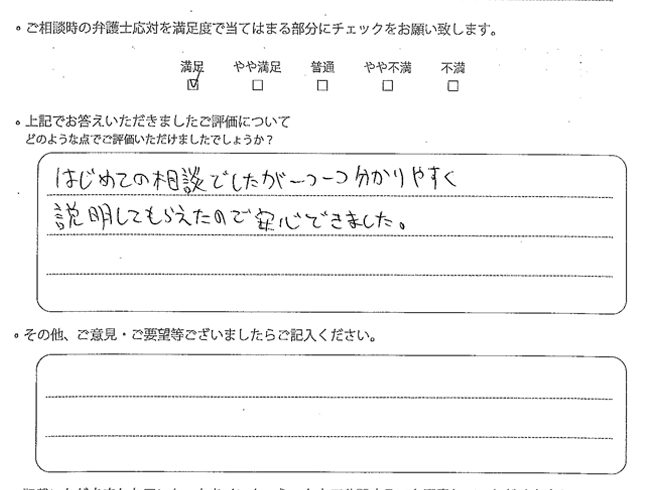 。ご相談時の弁護士応対を満足度で当てはまる部分にチェックをお願い致します。
満足 やや満足 普通 やや不満 不満
☑ □ □ □ □
。上記でお答えいただきましたご評価について
どのような点でご評価いただけましたでしょうか？
はじめての相談でしたが一つ一つ分かりやすく
説明してもらえたので安心できました。
。その他、ご意見・ご要望等ございましたらご記入ください。